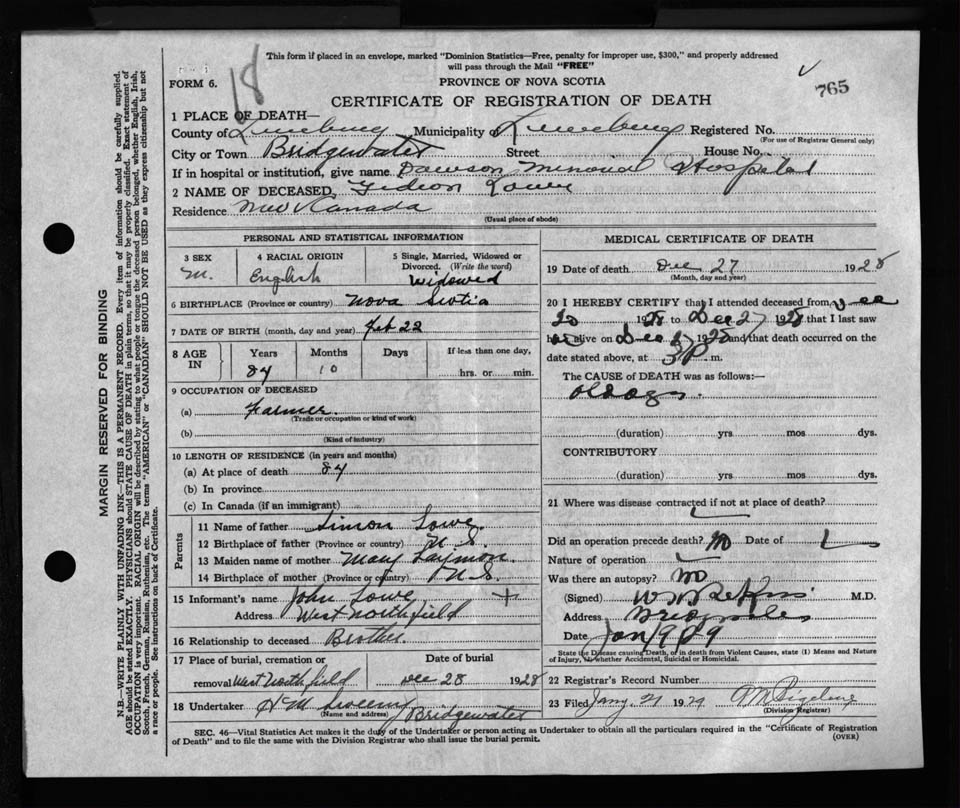 This form if placed in an envelope, marked "Dominion Statistics—Free, penalty for improper use, $300," and properly addressed
will pass through the Mail "FREE"
18
765
FORM 6.
PROVINCE OF NOVA SCOTIA
CERTIFICATE OF REGISTRATION OF DEATH
1 PLACE OF DEATH—
County of Lunenburg Municipality of Lunenburg Registered No.
(For use of Registrar General only)
City or Town Bridgewater Street House No.
If in hospital or institution, give name Dawson Memorial Hospital
2 NAME OF DECEASED Gideon Lowe
Residence New Canada
(Usual place of abode)
PERSONAL AND STATISTICAL INFORMATION
3 SEX 4 RACIAL ORIGIN 5 Single, Married, Widowed or
Divorced. (Write the word)
M. English Widowed
6 BIRTHPLACE (Province or country) Nova Scotia
7 DATE OF BIRTH (month, day and year) Feb 22
8 AGE IN Years Months Days If less than one day,
84 10 hrs. or min.
9 OCCUPATION OF DECEASED
(a) Farmer
(Trade or occupation or kind of work)
(b)
(Kind of industry)
10 LENGTH OF RESIDENCE (in years and months)
(a) At place of death 84
(b) In province
(c) In Canada (if an immigrant)
Parents
11 Name of father Simon Lowe
12 Birthplace of father (Province or country) N.S.
13 Maiden name of mother Mary
14 Birthplace of mother (Province or country) N.S.
15 Informant's name John Lowe
Address West Northfield
16 Relationship to deceased Brother
17 Place of burial, cremation or Date of burial
removal West Northfield Dec 28 1928
18 Undertaker Bridgewater
(Name and address)
MEDICAL CERTIFICATE OF DEATH
19 Date of death Dec 27 1928
(Month, day and year)
20 I HEREBY CERTIFY that I attended deceased from Dec
20 1928 to Dec 27 1928 that I last saw
alive on Dec 1928 and that death occurred on the
date stated above, at 3 P. m.
The CAUSE of DEATH was as follows:—
Old age.
(duration) yrs mos dys.
CONTRIBUTORY
(duration) yrs mos dys.
21 Where was disease contracted if not at place of death?
Did an operation precede death? No Date of
Nature of operation
Was there an autopsy? No
(Signed) M.D.
Address
Date Jan 1929
State the Disease causing Death, or in death from Violent Causes, state (1) Means and Nature
of Injury, (2) whether Accidental, Suicidal or Homicidal.
22 Registrar's Record Number
23 Filed Jany. 21 1929
(Division Registrar)
SEC. 46—Vital Statistics Act makes it the duty of the Undertaker or person acting as Undertaker to obtain all the particulars required in the "Certificate of Registration
of Death" and to file the same with the Division Registrar who shall issue the burial permit.
(OVER)
MARGIN RESERVED FOR BINDING
N.B.—WRITE PLAINLY WITH UNFADING INK—THIS IS A PERMANENT RECORD. Every item of information should be carefully supplied.
AGE should be stated EXACTLY. PHYSICIANS should STATE CAUSE OF DEATH in plain terms, so that it may be properly classified. Exact statement of
OCCUPATION is very important. RACIAL ORIGIN will be described by stating to what people or tongue the deceased person belonged, whether English, Irish,
Scotch, French, German, Russian, Ruthenian, etc. The terms "AMERICAN" or "CANADIAN" SHOULD NOT BE USED as they express citizenship but not
a race or people. See instructions on back of Certificate.